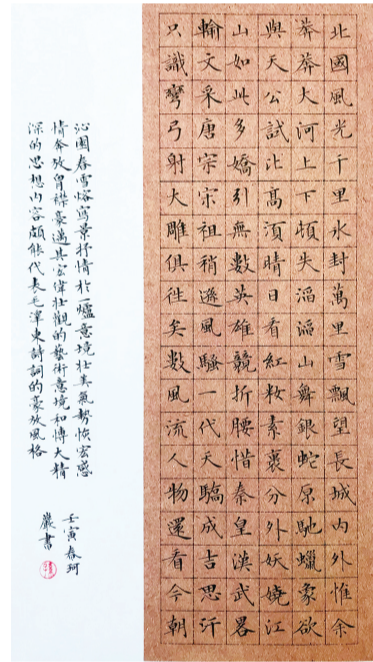 北國風光千里冰封萬里雪飄望長城內外惟余
莽莽大河上下頓失滔滔山舞銀蛇原馳蠟象欲
與天公試比高須晴日看紅粧素裹分外妖嬈江
山如此多嬌引無數英雄競折腰惜秦皇漢武畧
輸文采唐宗宋祖稍遜風騷一代天驕成吉思汗
只識彎弓射大雕俱往矣數風流人物還看今朝
沁園春雪熔寫景抒情於一爐意境壯美氣勢恢宏感
情奔放胸襟豪邁具宏偉壯觀的藝術意境和博大精
深的思想內容頗能代表毛澤東詩詞的豪放風格
壬寅春珂
嚴書